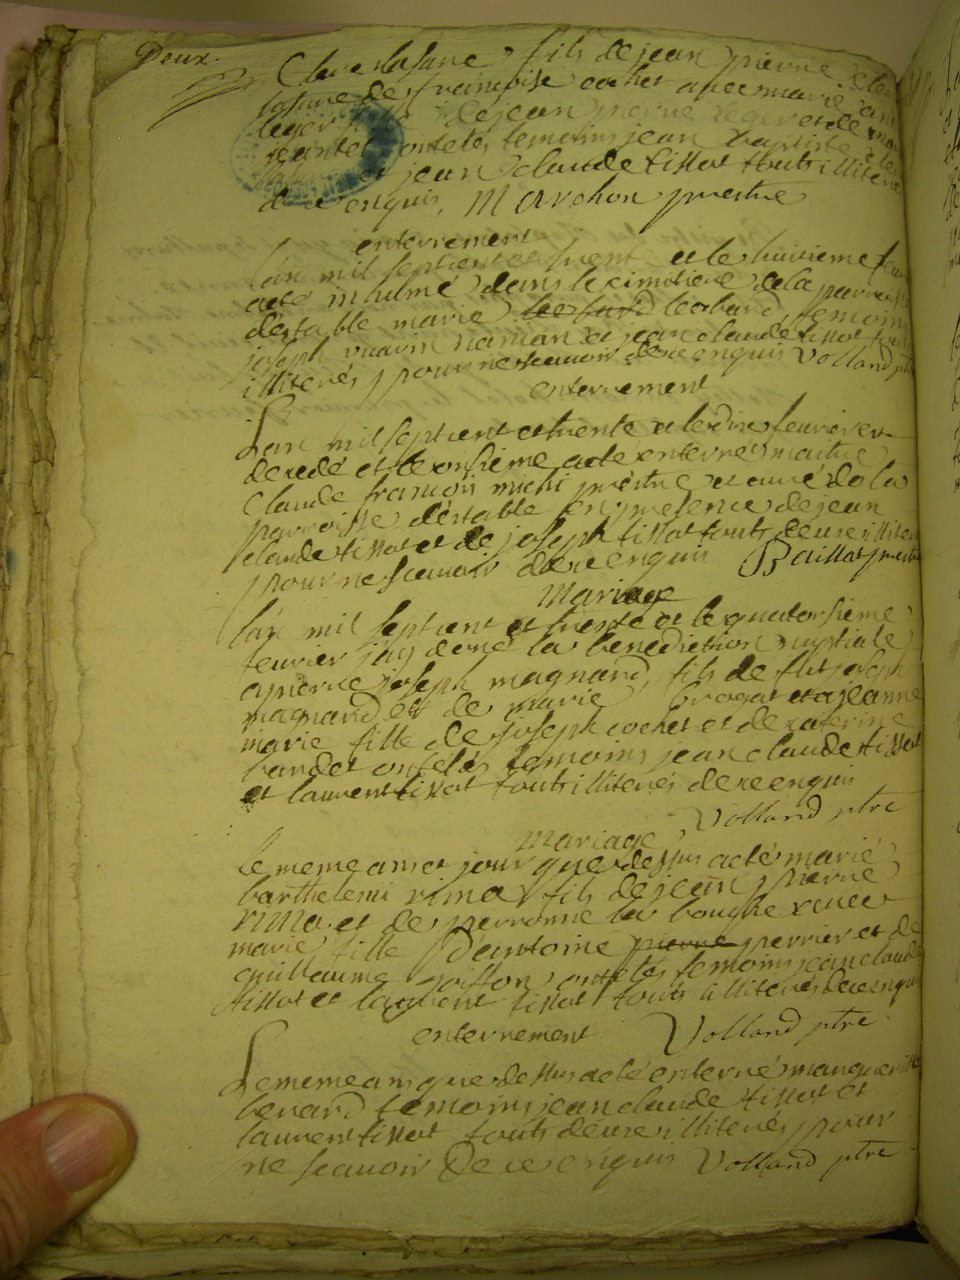 Deux.
Claude lasare fils de jean pierre
lasare de françoise cochet avec marie
leger de jean pierre leger et de
ont etes temoins jean Baptiste
et jean Claude tissot touts illiteré
de ce enquis, Marchon prestre
enterrement
lan mil septcent et trent et le huitieme
a eté inhumé dans le cimitiere de la parroisse
d'estable marie lea bard temoins
joseph et jean claude tissot
illiterés pour ne scauoir de ce enquis Volland ptre
enterrement
Lan mil septcent et trente et le dix feurier est
decedé et le onsieme a ete enterré maitre
Claude françois prestre et curé de la
parroisse d'estable en presence de jean
claude tissot et de joseph tissot touts deux illiteré
pour ne scauoir de ce enquis Baillot prestre
mariage
lan mil septcent et trente et le quatorsieme
feurier jay doné la benediction nuptiale
a pierre joseph magnard, fils de joseph
magnard et de marie et a jeanne
marie fille de joseph cochet et de caterine
bandet ont etés temoins jean claude tissot
et laurent tissot touts illiterés de ce enquis
Volland ptre
mariage
le meme an et jour que dessus a eté marié
barthelemi fils de jean pierre
et de perronne la bouche auec
marie fille d'antoine pierre perrier et de
guillauma ont etés temoins jean claude
tissot et laurent tissot touts illiterés de ce enquis
enterrement Volland ptre
Le meme an que dessus a eté enterré marguerite
berard temoins jean claude tissot et
laurent tissot touts deux illiterés pour
ne scauoir De ce enquis Volland ptre